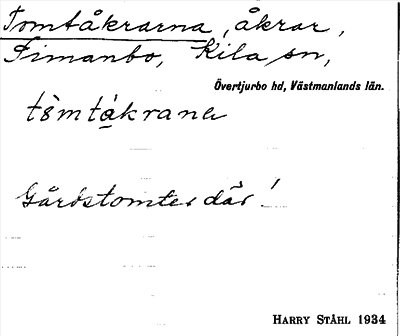 Tomtåkrarna, åkrar,
Finanbo, Kila sn,
Övertjurbo hd, Västmanlands län.
Gårdstomter där!
HARRY STÅHL 1934